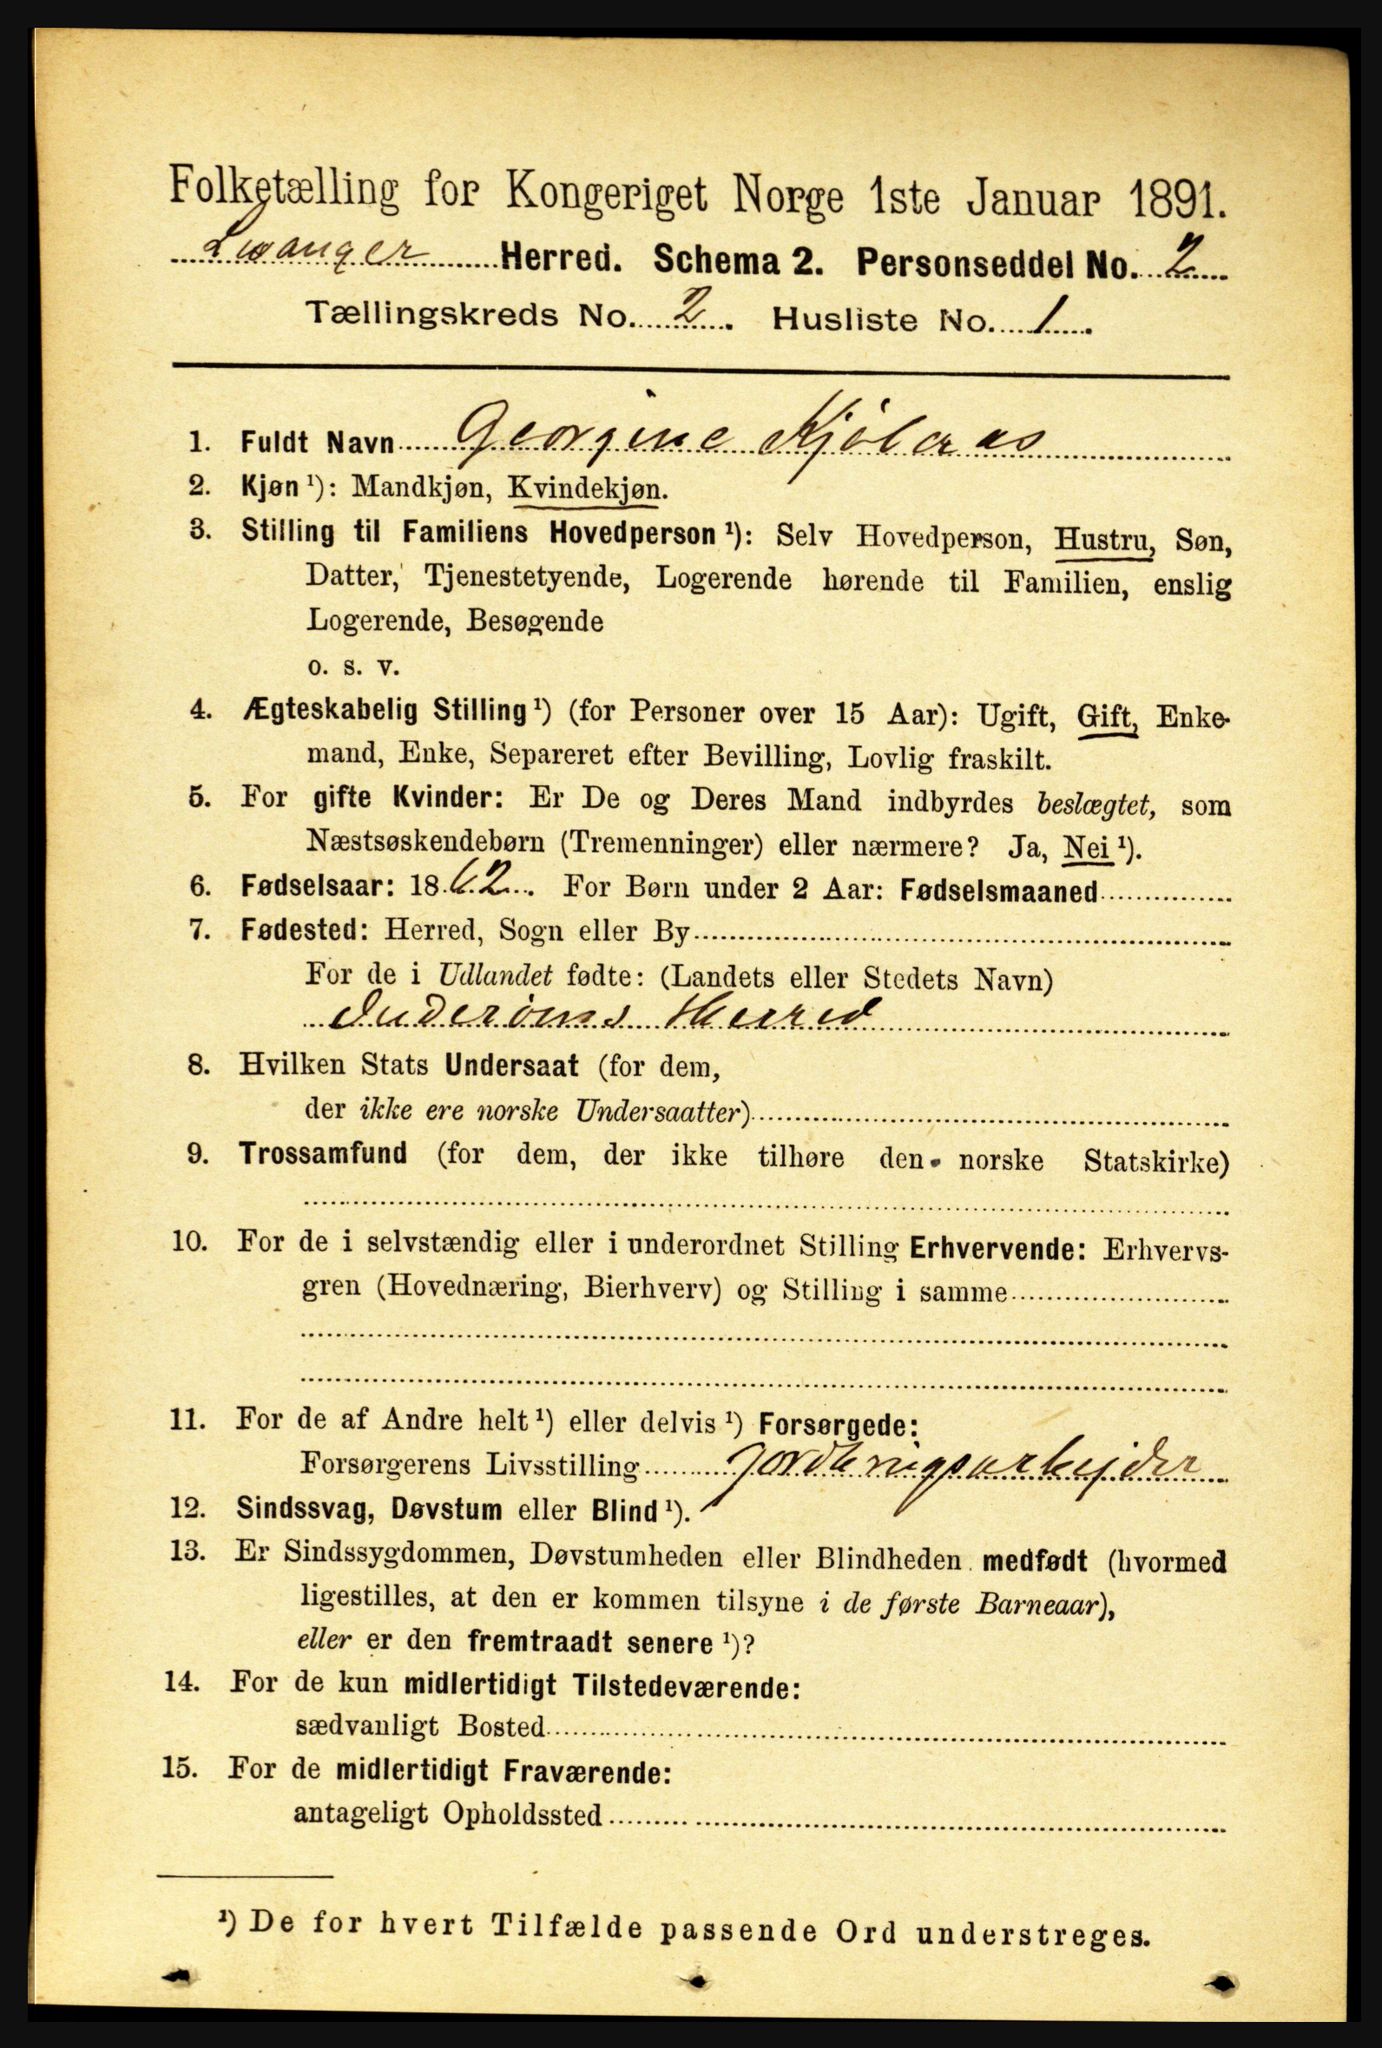 Folketælling for Kongeriget Norge 1ste Januar 1891.
Levanger Herred. Schema 2. Personseddel No. 2
Tællingskreds No. 2. Husliste No. 1.
1. Fuldt Navn Georgine Kjöleraas
2. Kjøn ¹): Mandkjøn, Kvindekjøn.
3. Stilling til Familiens Hovedperson ¹): Selv Hovedperson, Hustru, Søn,
Datter, Tjenestetyende, Logerende hørende til Familien, enslig
Logerende, Besøgende
o. s. v.
4. Ægteskabelig Stilling ¹) (for Personer over 15 Aar): Ugift, Gift, Enke-
mand, Enke, Separeret efter Bevilling, Lovlig fraskilt.
5. For gifte Kvinder: Er De og Deres Mand indbyrdes beslægtet, som
Næstsøskendebørn (Tremenninger) eller nærmere? Ja, Nei ¹).
6. Fødselsaar: 1862. For Børn under 2 Aar: Fødselsmaaned
7. Fødested: Herred, Sogn eller By
For de i Udlandet fødte: (Landets eller Stedets Navn)
Inderöens Herred
8. Hvilken Stats Undersaat (for dem,
der ikke ere norske Undersaatter)
9. Trossamfund (for dem, der ikke tilhøre den norske Statskirke)
10. For de i selvstændig eller i underordnet Stilling Erhvervende: Erhvervs-
gren (Hovednæring, Bierhverv) og Stilling i samme
11. For de af Andre helt ¹) eller delvis ¹) Forsørgede:
Forsørgerens Livsstilling Jordbrugsarbejder
12. Sindssvag, Døvstum eller Blind ¹).
13. Er Sindssygdommen, Døvstumheden eller Blindheden medfødt (hvormed
ligestilles, at den er kommen tilsyne i de første Barneaar),
eller er den fremtraadt senere ¹)?
14. For de kun midlertidigt Tilstedeværende:
sædvanligt Bosted
15. For de midlertidigt Fraværende:
antageligt Opholdssted
¹) De for hvert Tilfælde passende Ord understreges.